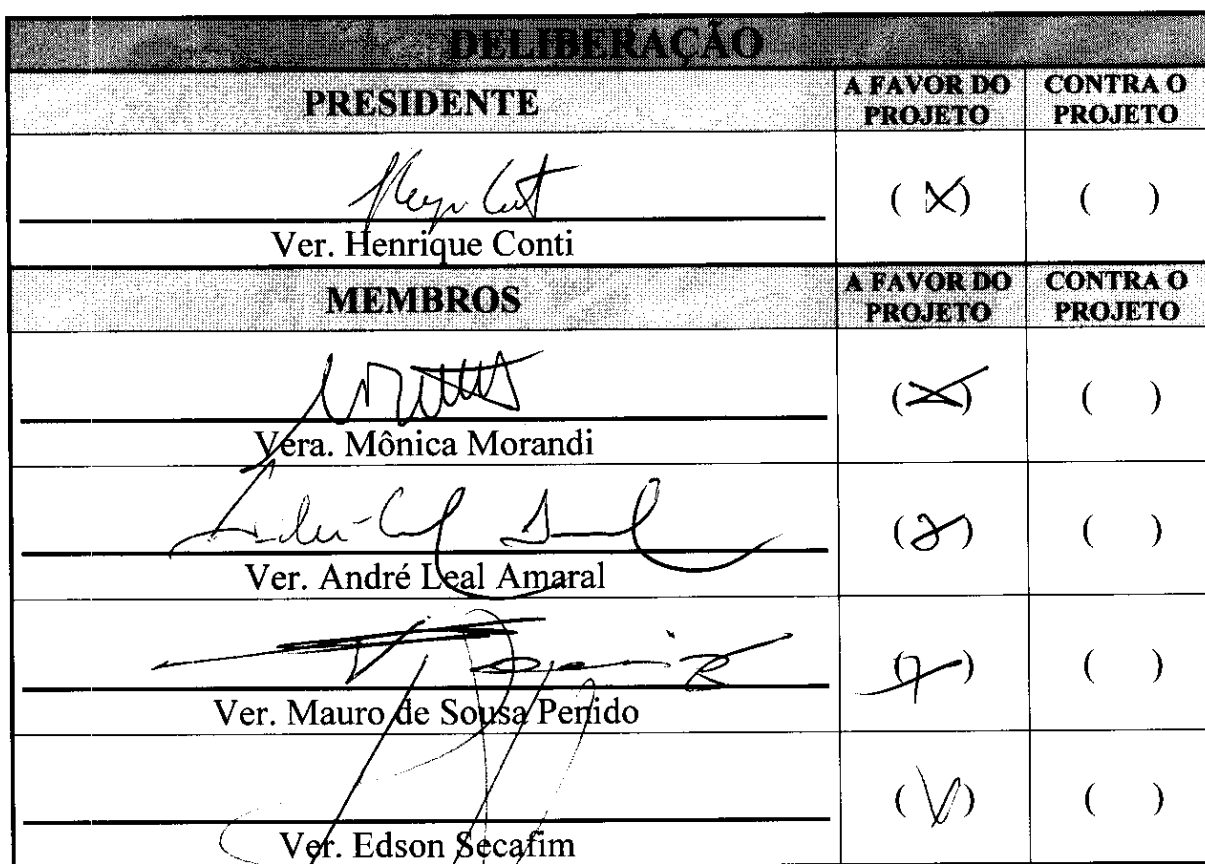 DELIBERAÇÃO
PRESIDENTE A FAVOR DO PROJETO CONTRA O PROJETO
( X) ( )
Ver. Henrique Conti
MEMBROS A FAVOR DO PROJETO CONTRA O PROJETO
(X) ( )
Vera. Mônica Morandi
( ) ( )
Ver. André Leal Amaral
( ) ( )
Ver. Mauro de Sousa Penido
( ) ( )
Ver. Edson Secafim